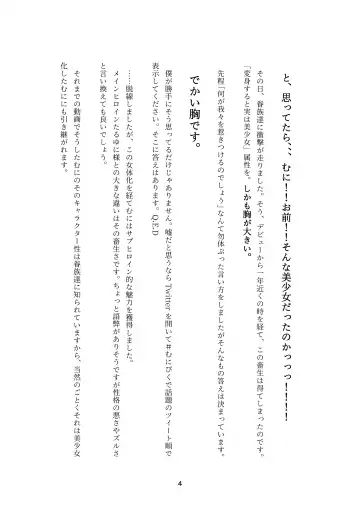 と、思ってたら、、、むに！！お前！！そんな美少女だったのかっっっ！！！！
その日、眷族達に衝撃が走りました。そう、デビューから一年近くの時を経て、この畜生は得てしまったのです。
「変身すると実は美少女」属性を。しかも胸が大きい。
先程「何が我々を惹きつけるのでしょう」なんて勿体ぶった言い方をしましたがそんなもの答えは決まっています。
でかい胸です。
僕が勝手にそう思ってるだけじゃありません。嘘だと思うならTwitterを開いて＃むにぴくで話題のツイート順で
表示してください。そこに答えはあります。Q.E.D
……脱線しましたが、この女体化を経てむにはサブヒロイン的な魅力を獲得しました。
メインヒロインたるゆに様との大きな違いはその畜生さです。ちょっと語弊がありそうですが性格の悪さやズルさ
と言い換えても良いでしょう。
それまでの動画でそうしたむにのそのキャラクター性は眷族達に知られていますから、当然のごとくそれは美少女
化したむににも引き継がれます。
4